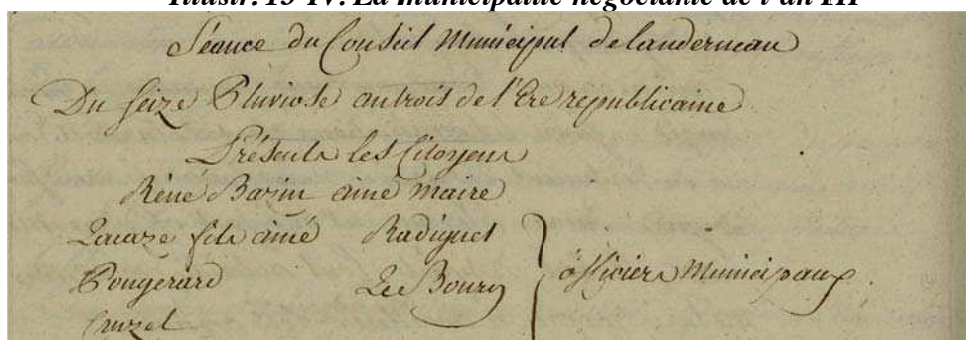 Illustr. 13-IV. La municipalité négociante de l'an III
Séance du Conseil Municipal de landerneau
Du Seize Pluviose an trois de l'Ere republicaine
Présents les Citoyens
Réné Bazin ainé maire
fils ainé Radiguet
Pougérard Le Bourg officiers Municipaux
Cruzel